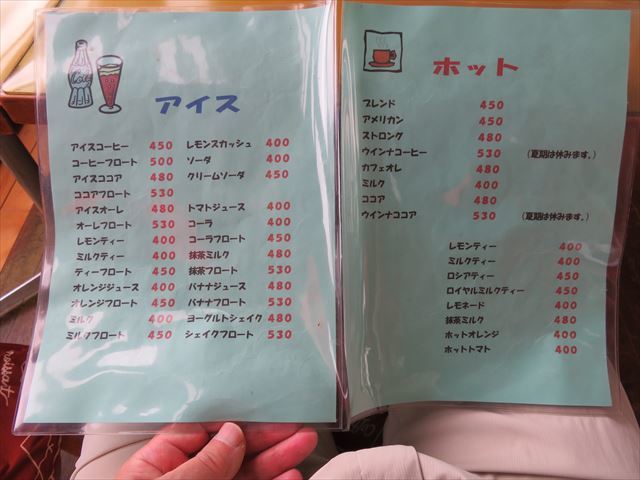 アイス
アイスコーヒー 450
コーヒーフロート 500
アイスココア 480
ココアフロート 530
アイスオーレ 480
オーレフロート 530
レモンティー 400
ミルクティー 400
ティーフロート 450
オレンジジュース 400
オレンジフロート 450
ミルク 400
ミルクフロート 450
レモンスカッシュ 400
ソーダ 400
クリームソーダ 450
トマトジュース 400
コーラ 400
コーラフロート 450
抹茶ミルク 480
抹茶フロート 530
バナナジュース 480
バナナフロート 530
ヨーグルトシェイク 480
シェイクフロート 530
ホット
ブレンド 450
アメリカン 450
ストロング 480
ウインナコーヒー 530 (夏期は休みます。)
カフェオレ 480
ミルク 400
ココア 480
ウインナココア 530 (夏期は休みます。)
レモンティー 400
ミルクティー 400
ロシアティー 450
ロイヤルミルクティー 450
レモネード 400
抹茶ミルク 480
ホットオレンジ 400
ホットトマト 400